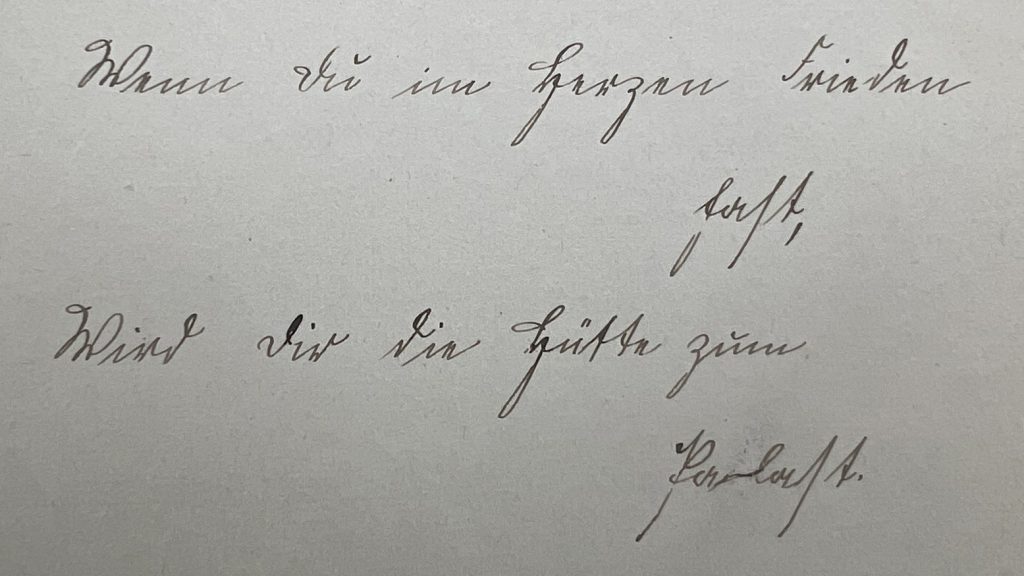 Wenn Du im Herzen Frieden
hast,
Wird Dir die Hütte zum
Palast.